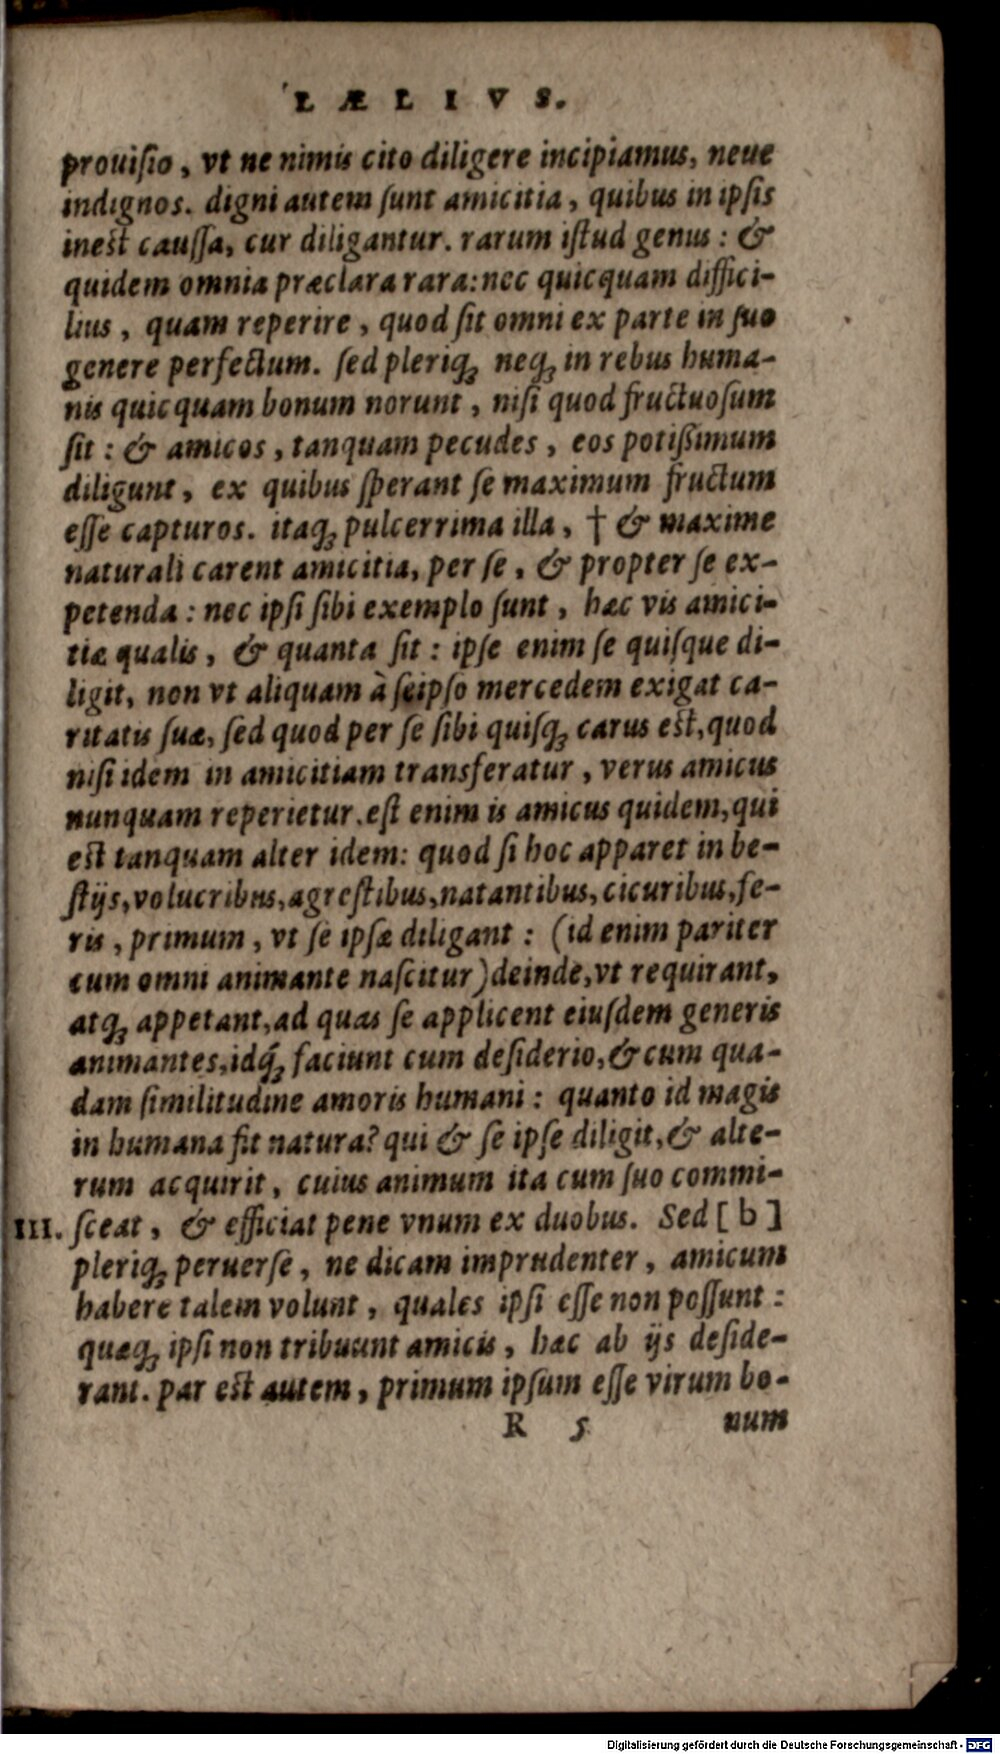 LÆLIVS.
prouiſio, vt ne nimis cito diligere incipiamus, neue
indignos. digni autem ſunt amicitia, quibus in ipſis
ineſt cauſſa, cur diligantur. rarum iſtud genus: &
quidem omnia præclara rara: nec quicquam diffici-
lius, quam reperire, quod ſit omni ex parte in ſuo
genere perfectum. ſed pleriq́ꝫ neqꝫ in rebus huma-
nis quicquam bonum norunt, niſi quod fructuoſum
ſit: & amicos, tanquam pecudes, eos potißimum
diligunt, ex quibus ſperant ſe maximum fructum
eſſe capturos. itaqꝫ pulcerrima illa, † & maxime
naturali carent amicitia, per ſe, & propter ſe ex-
petenda: nec ipſi ſibi exemplo ſunt, hæc vis amici-
tiæ qualis, & quanta ſit: ipſe enim ſe quiſque di-
ligit, non vt aliquam à ſeipſo mercedem exigat ca-
ritatis ſuæ, ſed quod per ſe ſibi quiſqꝫ carus eſt, quod
niſi idem in amicitiam transferatur, verus amicus
nunquam reperietur. eſt enim is amicus quidem, qui
eſt tanquam alter idem: quod ſi hoc apparet in be-
ſtijs, volucribus, agreſtibus, natantibus, cicuribus, fe-
ris, primum, vt ſe ipſæ diligant: (id enim pariter
cum omni animante naſcitur) deinde, vt requirant,
atqꝫ appetant, ad quas ſe applicent eiuſdem generis
animantes, idq́ꝫ faciunt cum deſiderio, & cum qua-
dam ſimilitudine amoris humani: quanto id magis
in humana fit natura? qui & ſe ipſe diligit, & alte-
rum acquirit, cuius animum ita cum ſuo commi-
III. ſceat, & efficiat pene vnum ex duobus. Sed [b]
pleriqꝫ peruerſe, ne dicam imprudenter, amicum
habere talem volunt, quales ipſi eſſe non poſſunt:
quæqꝫ ipſi non tribuunt amicis, hæc ab ijs deſide-
rant. par eſt autem, primum ipſum eſſe virum bo-
R 5 num
Digitalisierung gefördert durch die Deutsche Forschungsgemeinschaft - DFG